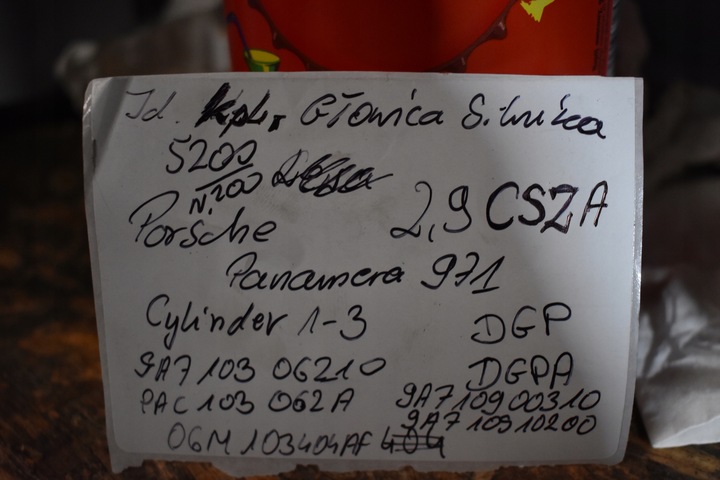 Id. kpl. Głowica Silnika
5200
N.200
Porsche 2,9 CSZA
Panamera 971
Cylinder 1-3 DGP
9A7 103 06210 DGPA
PAC 103 062A 9A710900310
9A710910200
06M 103404AF 404